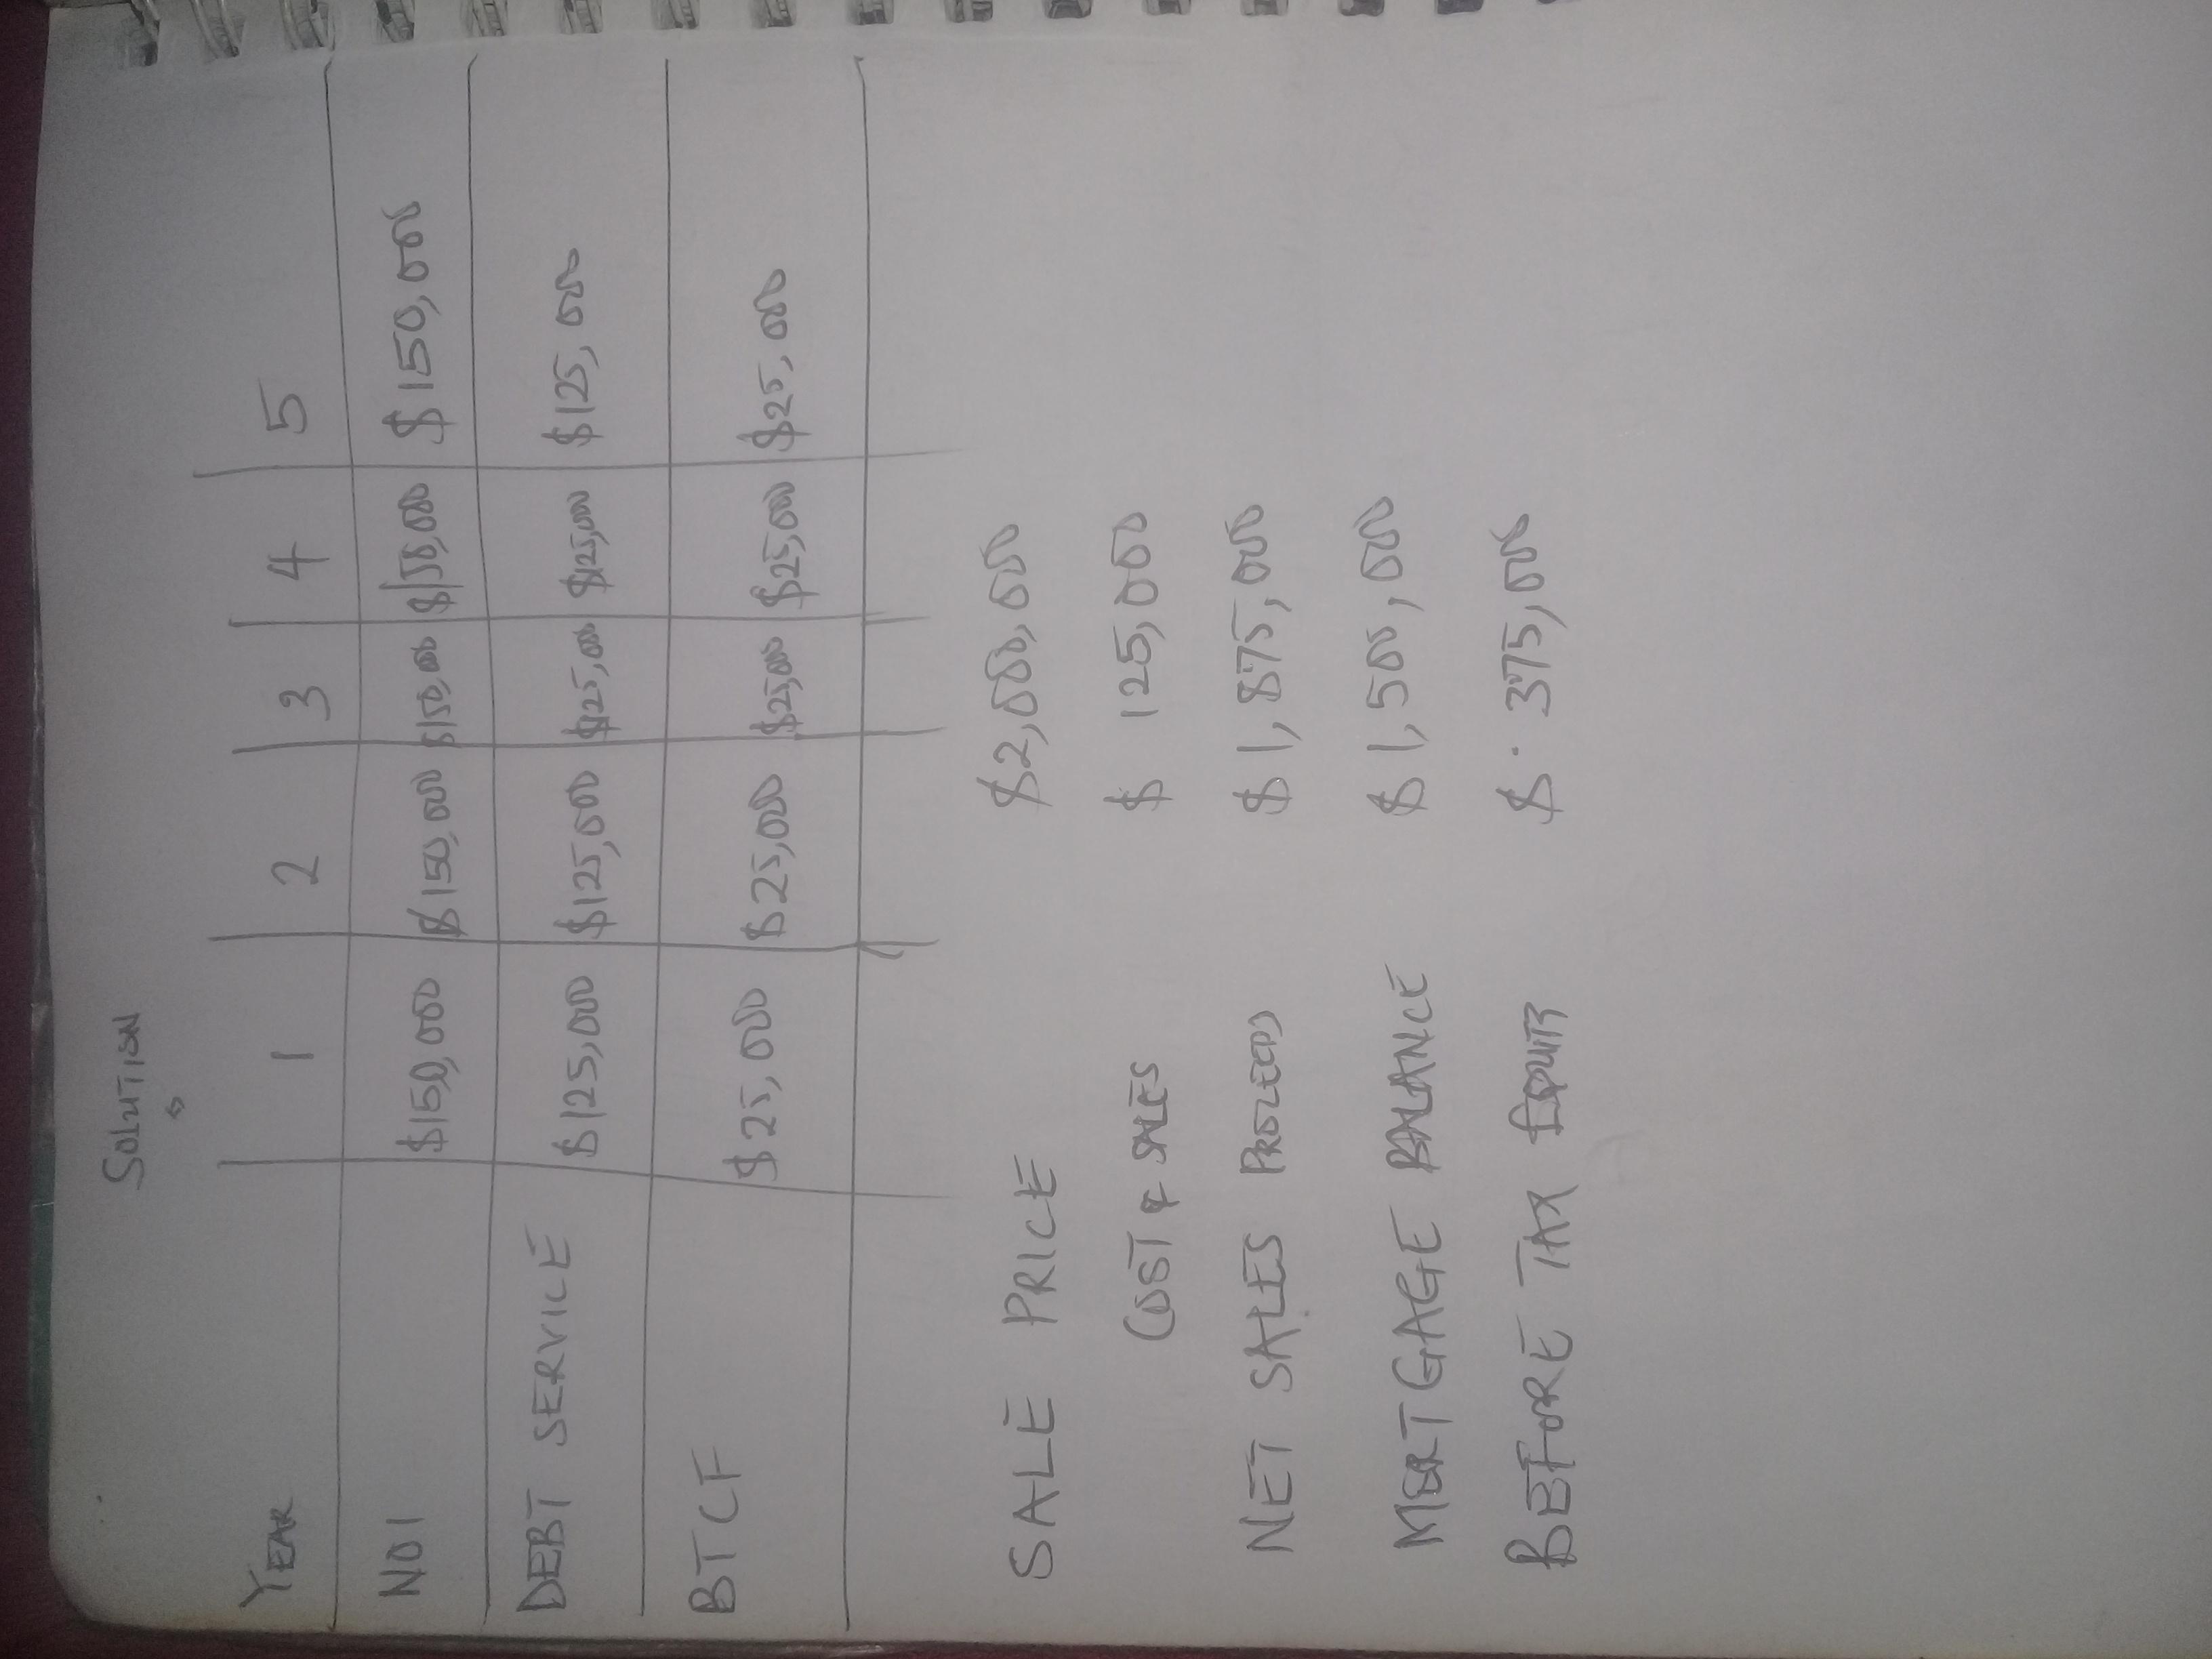 SOLUTION
YEAR 1 2 3 4 5
NOI $150,000 $150,000 $150,000 $150,000 $150,000
DEBT SERVICE $125,000 $125,000 $125,000 $125,000 $125,000
BTCF $25,000 $25,000 $25,000 $25,000 $25,000
SALE PRICE $2,000,000
COST & SALES $ 125,000
NET SALES PROCEEDS $1,875,000
MORTGAGE BALANCE $1,500,000
BEFORE TAX EQUITY $ 375,000